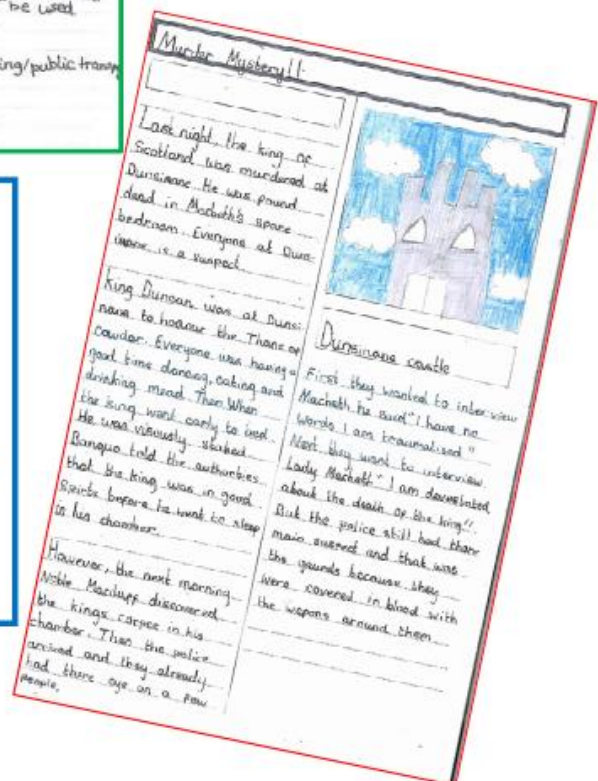 be used
ing/public transp
Murder Mystery!!
Last night, the king of
Scotland was murdered at
Dunsinane. He was pound
dead in Macbeth's spare
bedroom. Everyone at Duns-
inane is a suspect.
King Duncan was at Dunsi
nane to hoanur the Thane of
Cawdor. Everyone was having a
good time dancing, eating and
drinking mead. Then When
the king went early to bed.
He was visously stabed.
Banquo told the authorities
that the king was in good
Spirits before he went to sleep
in his chamber.
However, the next morning
Noble Macduff discovered
the kings corpse in his
chamber. Then the police
arrived and they already
had there eye on a few
people.
Dunsinane castle
First they wanted to interview
Macbeth he said "I have no
words I am traumatised"
Next they went to interview
Lady Macbeth "I am devastated
about the death of the king".
But the police still had there
main suspect and that was
the gaurds because they
were covered in blood with
the wepons around them